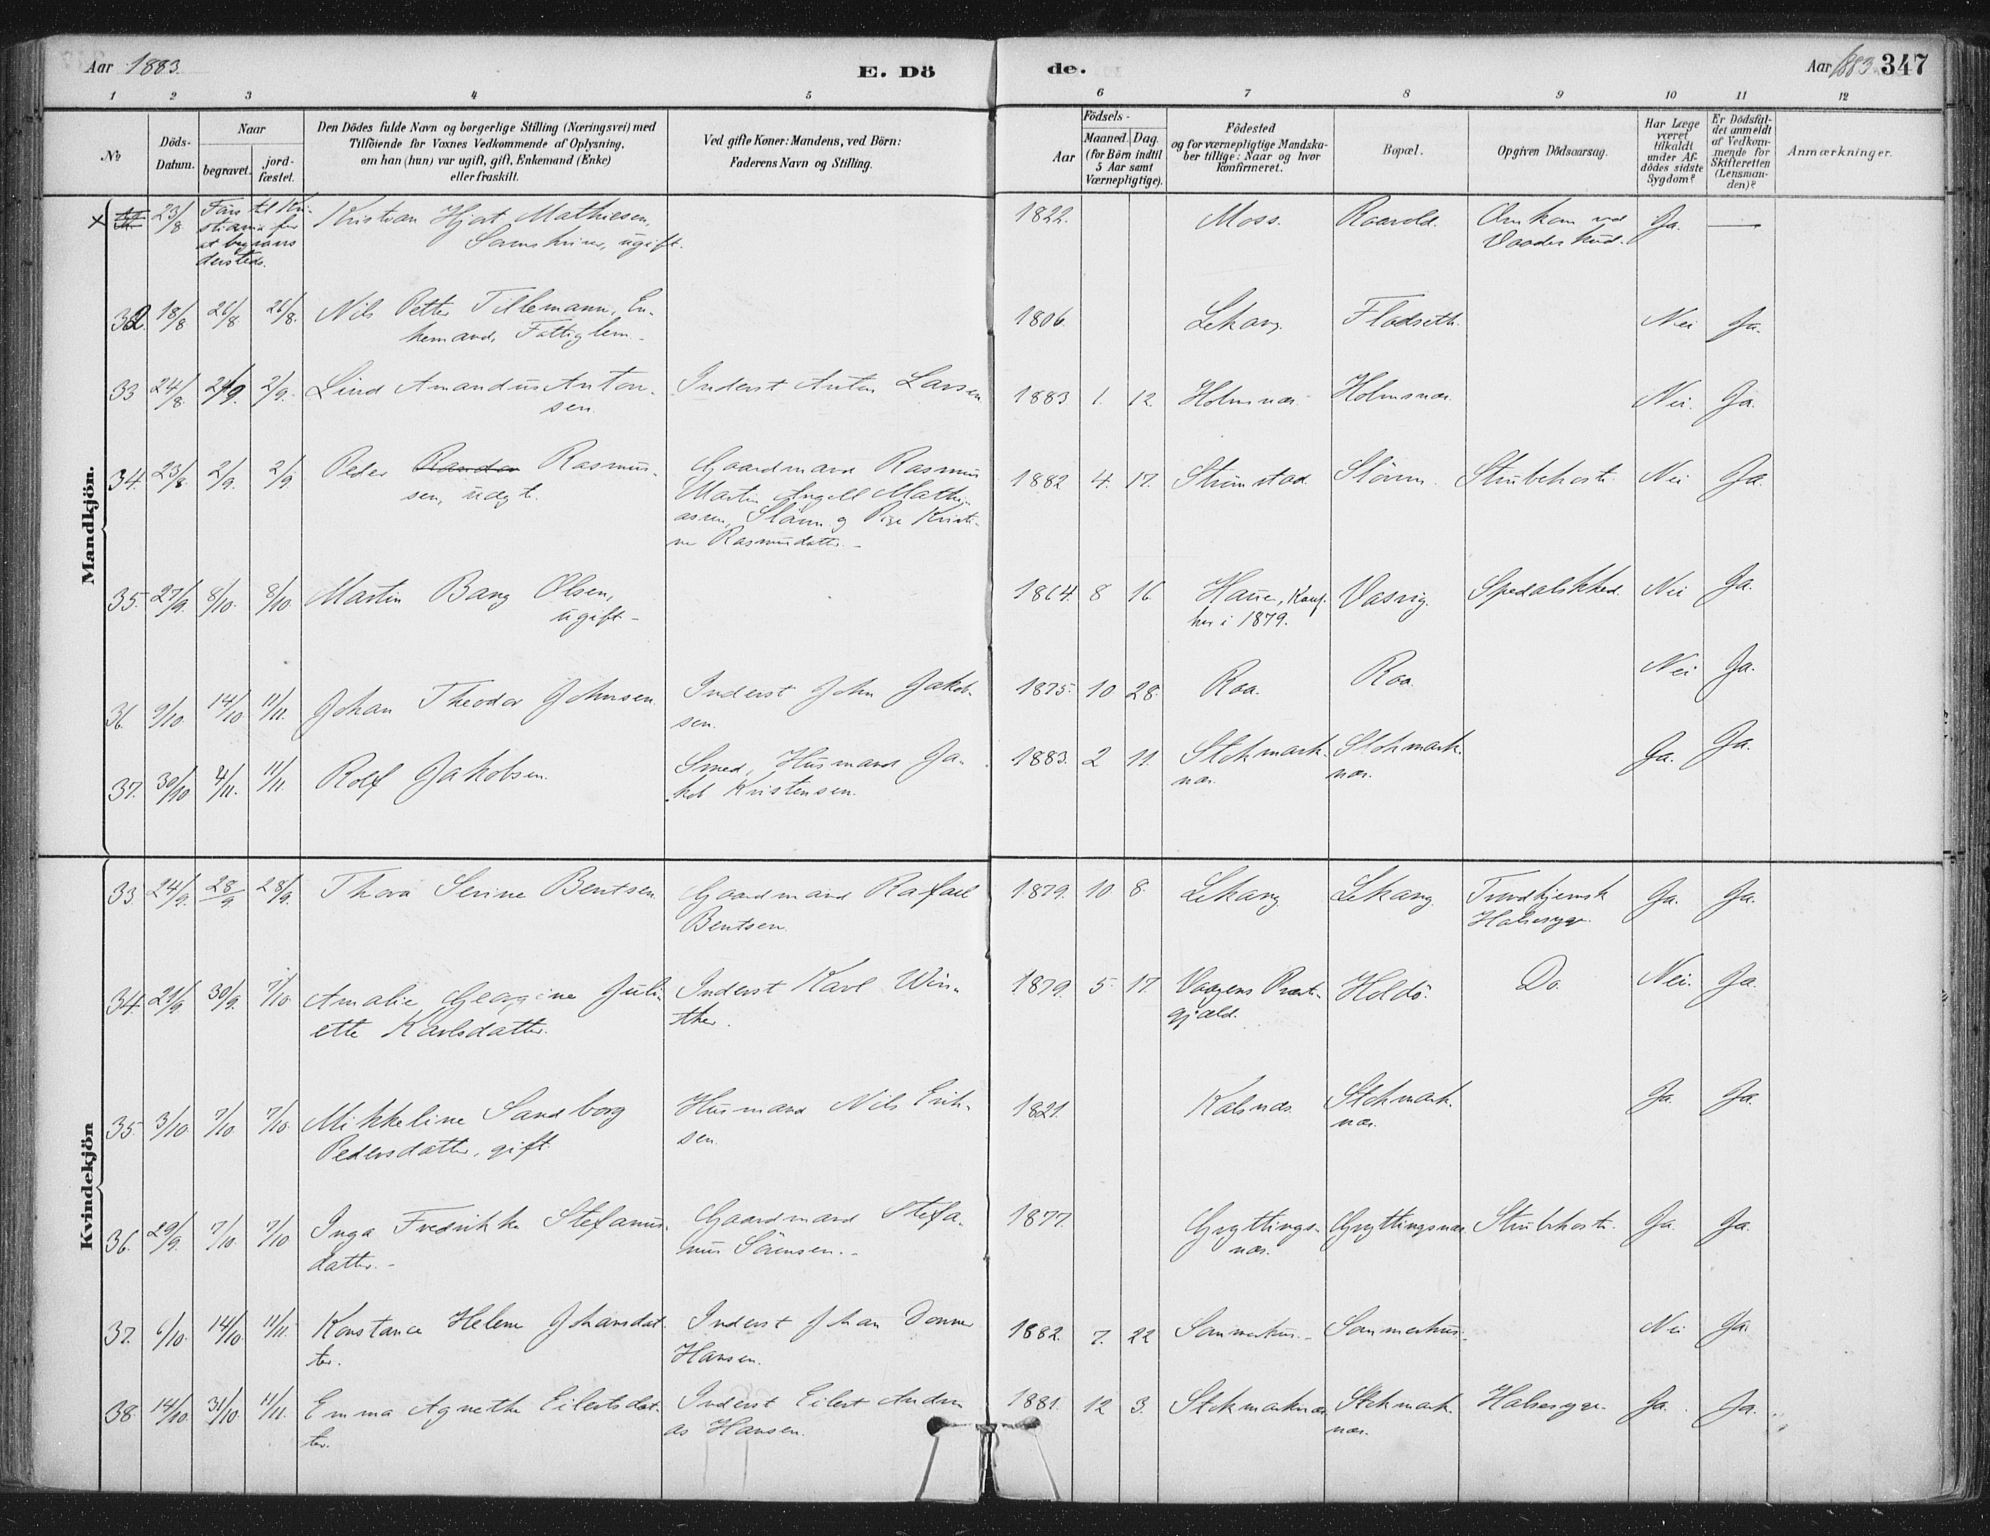 Aar 1883.
E. Dö
de.
Aar 1883. 347
1 2 3 4 5 6 7 8 9 10 11 12
No
Döds-
Datum.
Naar
begravet.
jord-
fæstet.
Den Dödes fulde Navn og borgerlige Stilling (Næringsvei) med
Tilföiende for Voxnes Vedkommende af Oplysning,
om han (hun) var ugift, gift, Enkemand (Enke)
eller fraskilt.
Ved gifte Koner: Mandens, ved Börn:
Faderens Navn og Stilling.
Födsels-
Aar
Maaned. Dag.
(for Börn indtil
5 Aar samt
Værnepligtige).
Födested
og for værnepligtige Mandska-
ber tillige: Naar og hvor
konfirmeret.
Bopæl.
Opgiven Dödsaarsag.
Har Læge
været
tilkaldt
under Af-
dödes sidste
Sygdom?
Er Dödsfal-
det anmeldt
af Vedkom-
mende for
Skifteretten
(Lensman-
den)?
Anmærkninger.
Mandkjön.
× 23/8 Kristian Hjort Mathiesen, 1822. Moss. Omkom ved Ja. —
ugift. Vaadeskud.
at begraves
dersteds.
32. 18/8 26/8 26/8. Nils Petter Tillemann, En- 1806. Lekang Flodseth. Nei Ja.
kemand, Fattiglem.
33 24/8. 2/9. 2/9. Lind Amandus Anton- Inderst Anton Larsen 1883 1. 12. Holmsnæs. Holmsnæs. Nei. Ja.
sen.
34. 23/8 2/9. 2/9 Peder Rasmus- Gaardmand Rasmus 1882 4. 17. Strömstad. Slåum. Strubehoste. Nei Ja.
sen, uægt. Martin Angell Mathi-
assen, Slåum og Pige Kristi-
ne Rasmusdatter.
35. 27/9. 8/10. 8/10 Martin Bang Olsen, 1864. 8 16 Haue, Konf. Vasvig. Spedalskhed. Nei Ja.
ugift. her i 1879.
36. 9/10. 14/10 11/11. Johan Theodor Johnsen. Inderst John Jakob- 1875. 10 28. Roa. Roa. Nei Ja.
sen.
37. 30/10 4/11. 11/11. Rolf Jakobsen. Smed, Husmand Ja- 1883. 2 11. Stokmark- Stokmark- Ja. Ja.
kob Kristensen. næs. næs.
Kvindekjön
33. 24/9. 28/9 28/9. Thora Serine Bentsen Gaardmand Rafael 1879. 10. 8. Lekang Lekang. Trondhjemsk Ja. Ja.
Bentsen. Halssyge.
34. 21/9 30/9. 7/10 Amalie Georgine Juli- Inderst Karl Win- 1879. 5. 17. Vaagens Præste- Holdö. Do. Nei. Ja.
ette Karlsdatter. ther. gjæld.
35. 3/10 7/10 7/10. Mikkeline Sandborg Husmand Nils Erik- 1821. Kalsnæs. Stokmark- Ja. Ja
Pedersdatter, gift. sen. næs.
36. 29/9. 7/10. 7/10 Inga Fredrikke Stefanus- Gaardmand Stefa- 1877. Gryttings- Gryttingsnæs Strubehoste. Ja. Ja.
datter. nus Sörensen. næs.
37. 6/10. 14/10 11/11. Konstance Helene Johansdat- Inderst Johan Danner 1882. 7. 22 Sommerhus. Sommerhus. Nei Ja.
ter. Hansen.
38. 14/10. 31/10. 11/11. Emma Agnethe Eilertsdat- Inderst Eilert Andre- 1881. 12 3. Stokmarknæs Stokmark- Halssyge. Ja. Ja.
ter. as Hansen. næs.